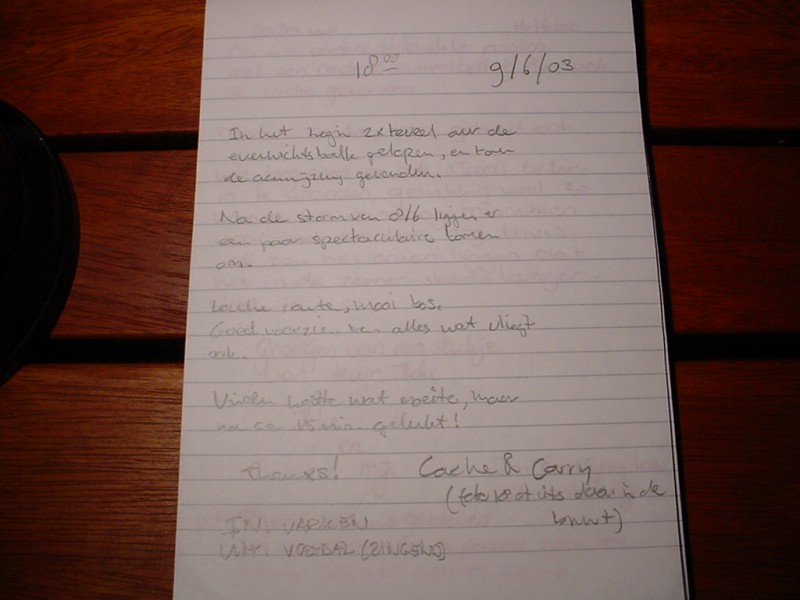 18:00 9/6/03
In het begin 2x teveel over de
evenwichtsbalk gelopen, en toen
de aanwijzing gevonden.
Na de storm van 8/6 liggen er
een paar spectaculaire bomen
om.
Leuke route, mooi bos.
Goed voorzien van alles wat vliegt
ook.
Vinden kostte wat moeite, maar
na ca. 15 min. gelukt!
Thanks! Cache & Carry
(foto is iets daar in de
buurt)
IN: VARKEN
UIT: VOETBAL (ZINGEND)